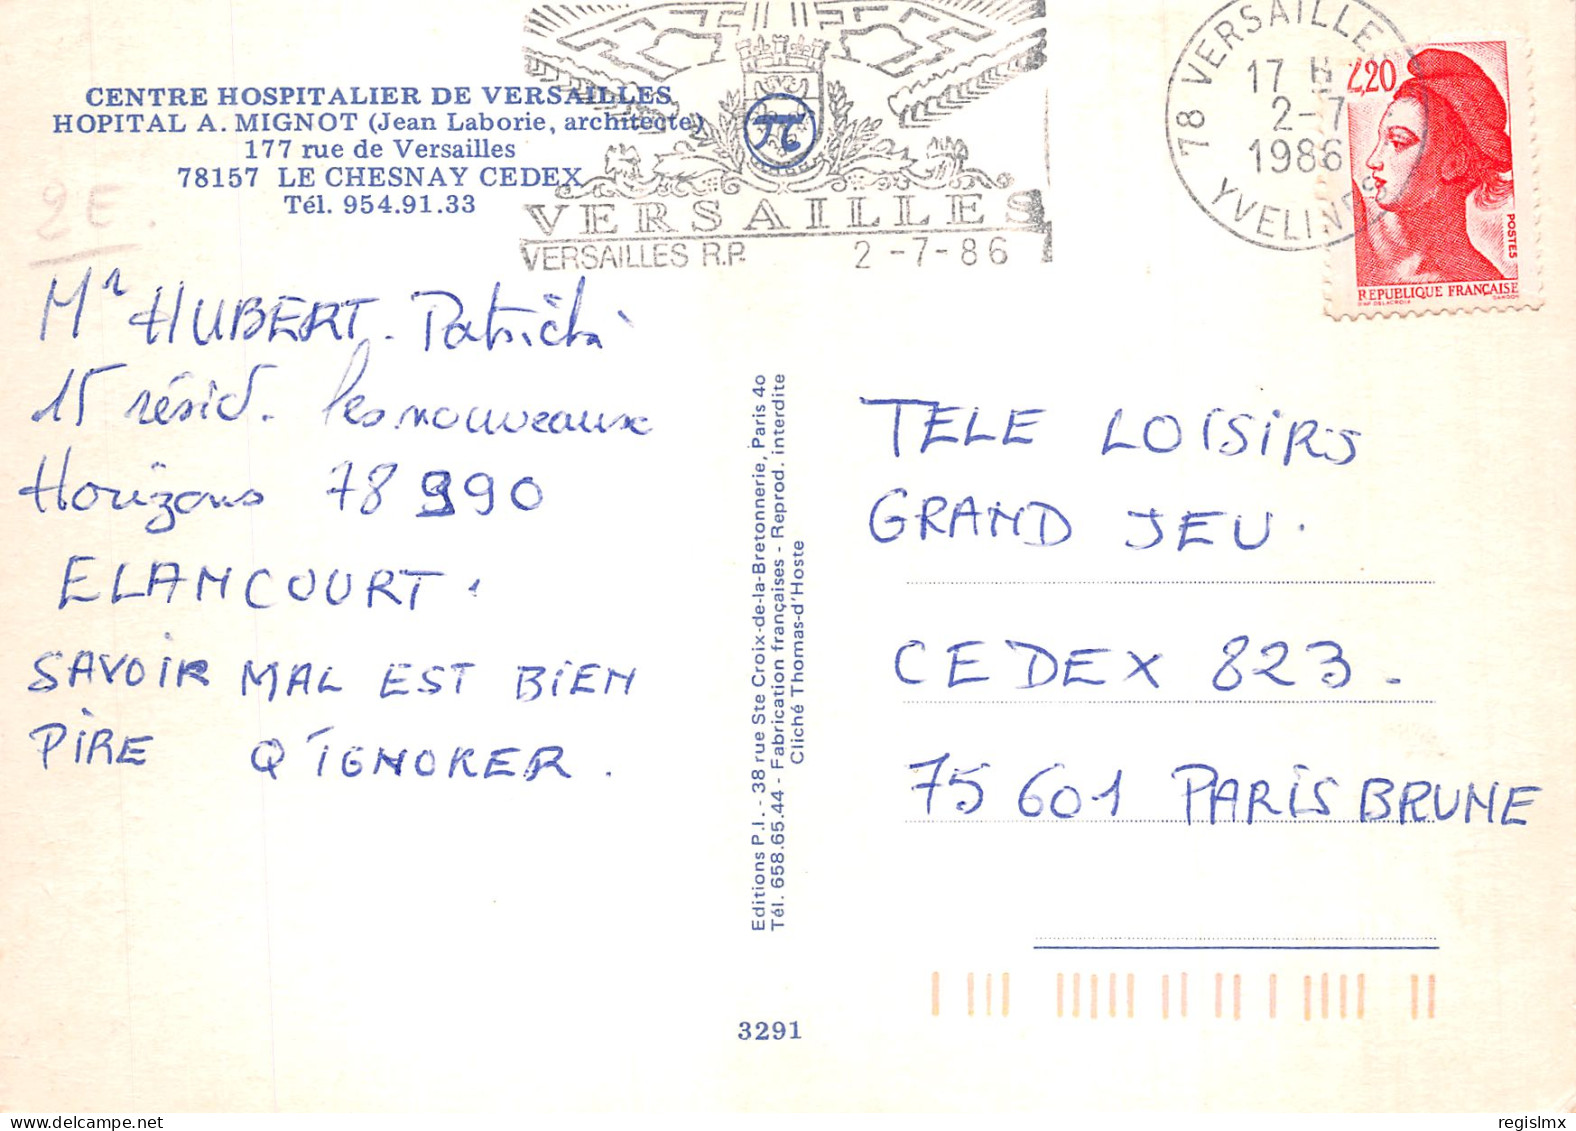 CENTRE HOSPITALIER DE VERSAILLES
HOPITAL A. MIGNOT (Jean Laborie, architecte)
177 rue de Versailles
78157 LE CHESNAY CEDEX
Tél. 954.91.33
2E.
VERSAILLES
VERSAILLES R.P. 2-7-86
78 VERSAILLES
17 H
2-7
1986
YVELINES
2,20
POSTES
REPUBLIQUE FRANÇAISE
D'AP. DELACROIX GANDON
Mr HUBERT. Patrick
15 résid. les nouveaux
Horizons 78 990
ELANCOURT.
SAVOIR MAL EST BIEN
PIRE Q'IGNORER.
Editions P.I. - 38 rue Ste Croix-de-la-Bretonnerie, Paris 4o
Tél. 658.65.44 - Fabrication françaises - Reprod. interdite
Cliché Thomas-d'Hoste
TELE LOISIRS
GRAND JEU.
CEDEX 823.
75 601 PARIS BRUNE
3291
regislmx